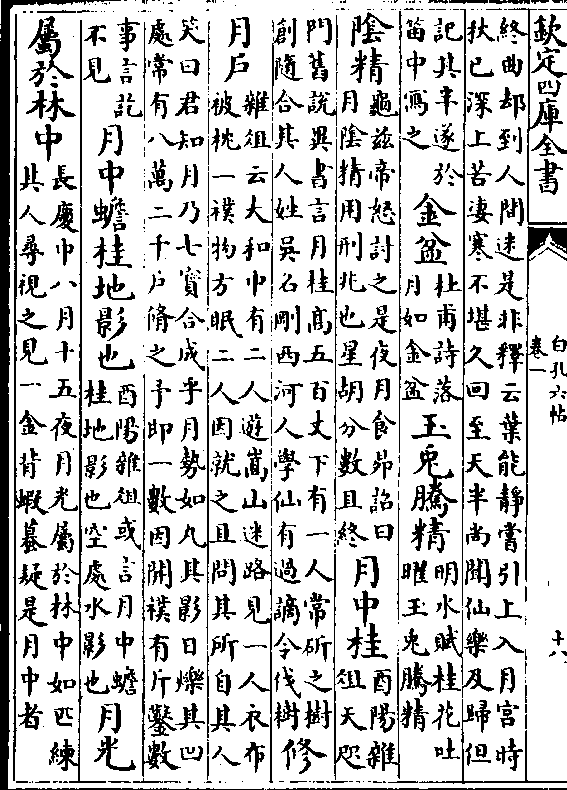 欽定四庫全書
白孔六帖
卷一
終曲却到人間迷是非釋云葉能靜嘗引上入月宮時
秋已深上苦凄寒不堪久回至天半尚聞仙樂及歸但
記其半遂於
笛中寫之
金盆
杜甫詩落
月如金盆
玉兔騰精
明水賦桂花吐
曜玉兔騰精
陰精
龜兹帝怒討之是夜月食昴詔曰
月陰精用刑兆也星胡分數且終
月中桂
酉陽雜
俎天咫
門舊說異書言月桂高五百丈下有一人常斫之樹
創隨合其人姓吳名剛西河人學仙有過謫令伐樹
修
月戶
雜俎云大和中有二人遊嵩山迷路見一人衣布
被枕一襆物方眠二人因就之且問其所自其人
笑曰君知月乃七寶合成乎月勢如丸其影日爍其凹
處常有八萬二千戶脩之予即一數因開襆有斤鑿數
事言訖
不見
月中蟾桂地影也
酉陽雜俎或言月中蟾
桂地影也空處水影也
月光
屬於林中
長慶中八月十五夜月光屬於林中如匹練
其人尋視之見一金背蝦蟇疑是月中者